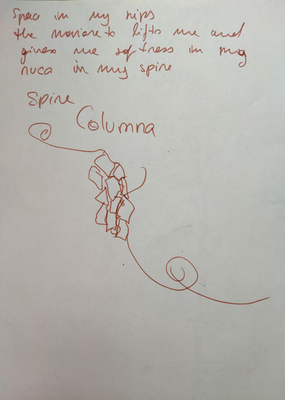 Space in my hips
the moviare to lifts me and
gives me softness in my
nuca in my spire
Spire
Columna